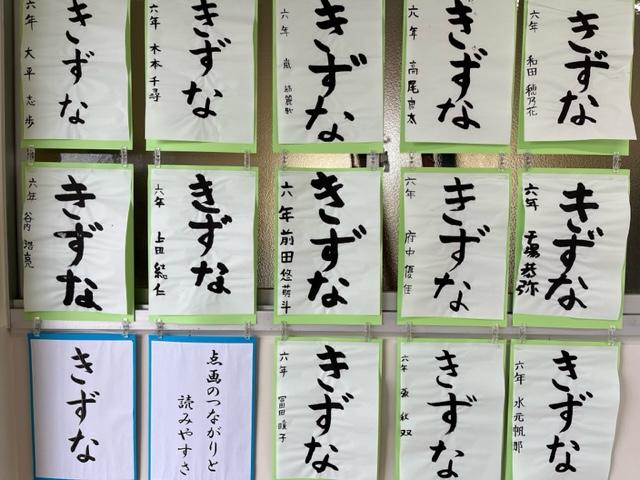 きずな
六年 大平 志歩
きずな
六年 木本 千尋
きずな
六年
きずな
六年 高尾
きずな
六年 和田 穂乃花
きずな
六年 谷内
きずな
六年 上田 結仁
きずな
六年 前田 悠萌斗
きずな
六年 府中 優佳
きずな
六年
きずな
点画のつながりと
読みやすさ
きずな
六年 冨田 暖子
きずな
六年
きずな
六年 水元 帆那